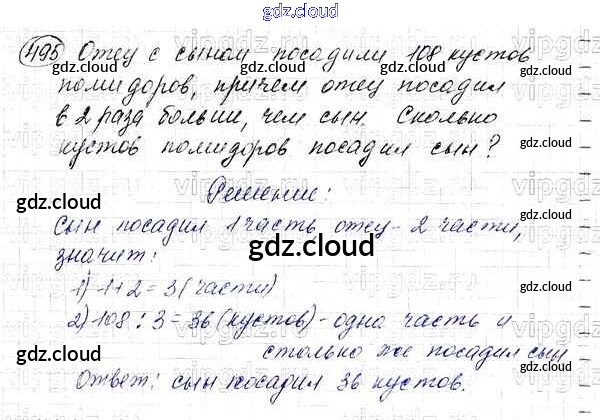 gdz.cloud
495 Отец с сыном посадили 108 кустов
gdz.cloud gdz.cloud gdz.cloud
помидоров, причем отец посадил
в 2 раза больше, чем сын. Сколько
кустов помидоров посадил сын?
gdz.cloud gdz.cloud
Решение:
gdz.cloud gdz.cloud
Сын посадил 1 часть отец - 2 части,
значит:
gdz.cloud
1) 1+2=3 (части)
gdz.cloud gdz.cloud
2) 108 : 3 = 36 (кустов) - одна часть и
столько же посадил сын
gdz.cloud gdz.cloud gdz.cloud
Ответ: сын посадил 36 кустов.